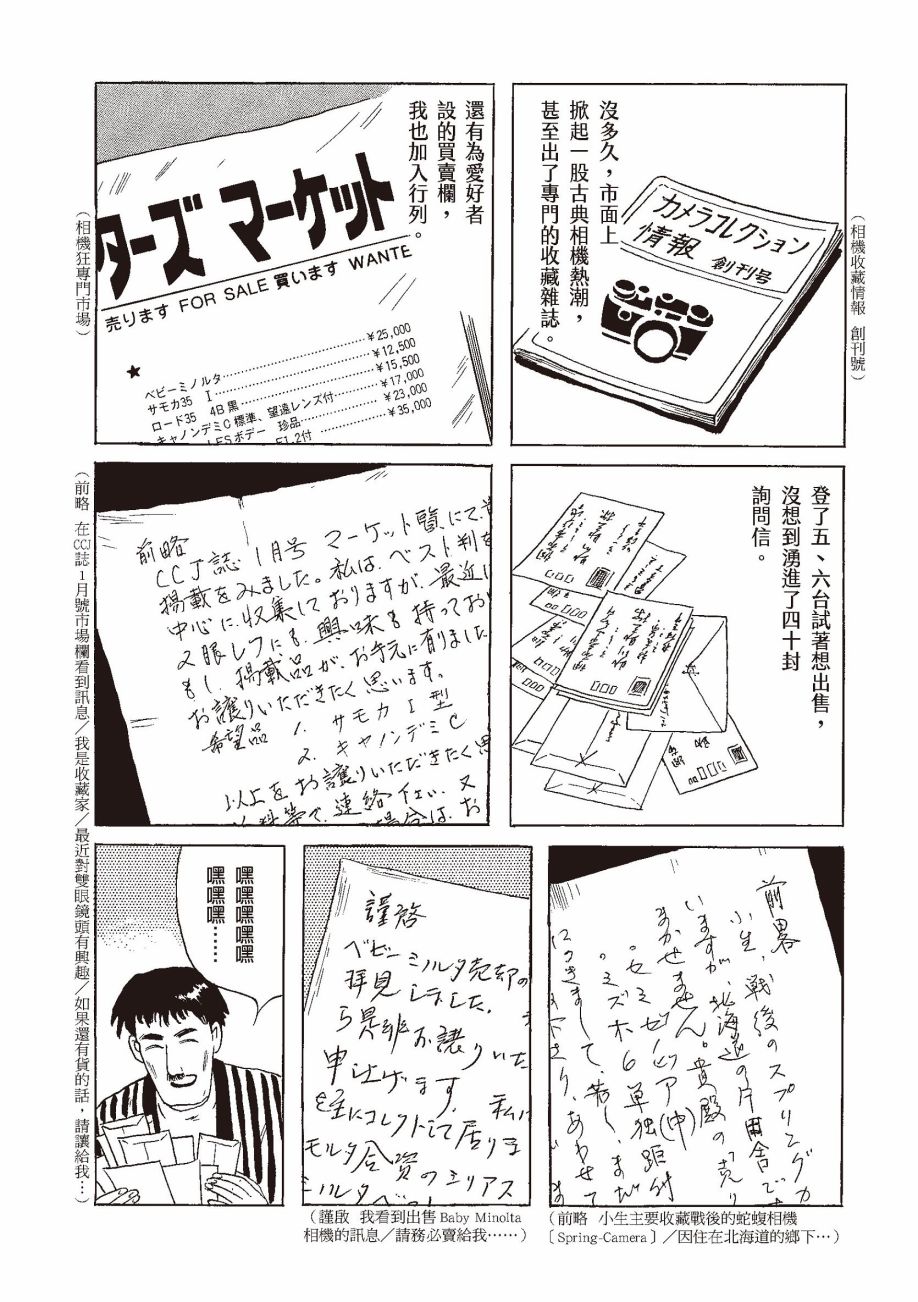 沒多久，市面上
掀起一股古典相機熱潮，
甚至出了專門的收藏雜誌。
カメラコレクション
情報 創刊号
（相機收藏情報 創刊號）
還有為愛好者
設的買賣欄，
我也加入行列。
ターズ マーケット
売ります FOR SALE 買います WANTE
★
ベビーミノルタ……¥25,000
サモカ35 Ⅰ……¥12,500
ロード35 4B黒……¥15,500
キャノンデミC標準、望遠レンズ付……¥17,000
LFSボデー 珍品……¥23,000
F1.2付……¥35,000
（相機狂專門市場）
登了五、六台試著想出售，
沒想到湧進了四十封
詢問信。
前略
CCJ誌 1月号 マーケット覧にて
掲載をみました。私は、ベスト判を
中心に、収集しておりますが、最近は
2眼レフにも、興味も持ってお
もし、掲載品が、お手元に有りました
お譲りいただきたく思います。
希望品 1. サモカ Ⅰ型
2. キャノンデミC
以上をお譲りいただきたく思
連絡 又
場合は、お
（前略 在CCJ誌1月號市場欄看到訊息／我是收藏家／最近對雙眼鏡頭有興趣／如果還有貨的話，請讓給我…）
前略
小生、戦後のスプリングカ
いますが、北海道の片田舎で
まかせません。貴殿の「売り
。セミ ゼノア(中)
。ミズホ6 単独距
につきまして、若し、まだ
下さり、あわせて
（前略 小生主要收藏戰後的蛇蝮相機
〔Spring-Camera〕／因住在北海道的鄉下…）
謹啓
ベビーミノルタ売却の
拝見しました。
ら是非お譲りいた
申上げます。
私に
主にコレクトして居りま
モルタ合資のシリアス
ミノルタベ
（謹啟 我看到出售Baby Minolta
相機的訊息／請務必賣給我……）
嘿嘿嘿嘿嘿
嘿嘿嘿……